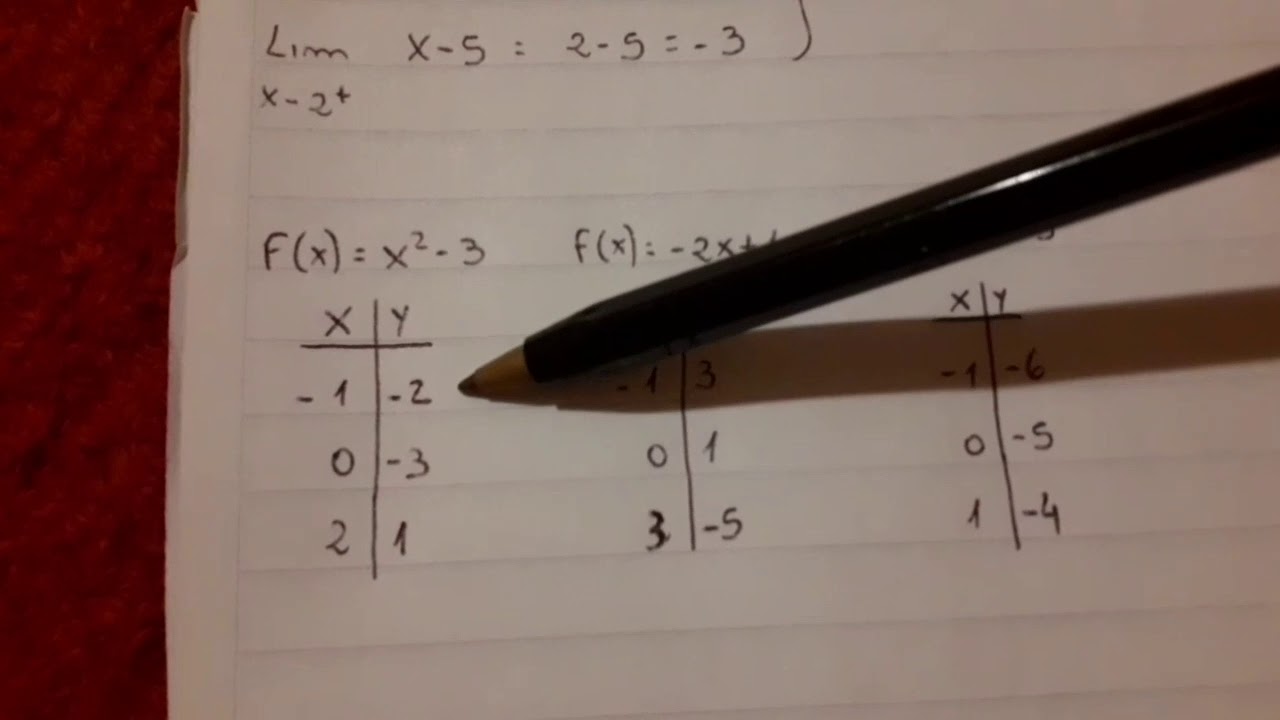 Lim x-5 = 2-5 = -3 )
x-2+
F(x) = x²-3 f(x) = -2x+
x | y
-1 | -2
0 | -3
2 | 1
-1 | 3
0 | 1
3 | -5
x | y
-1 | -6
0 | -5
1 | -4